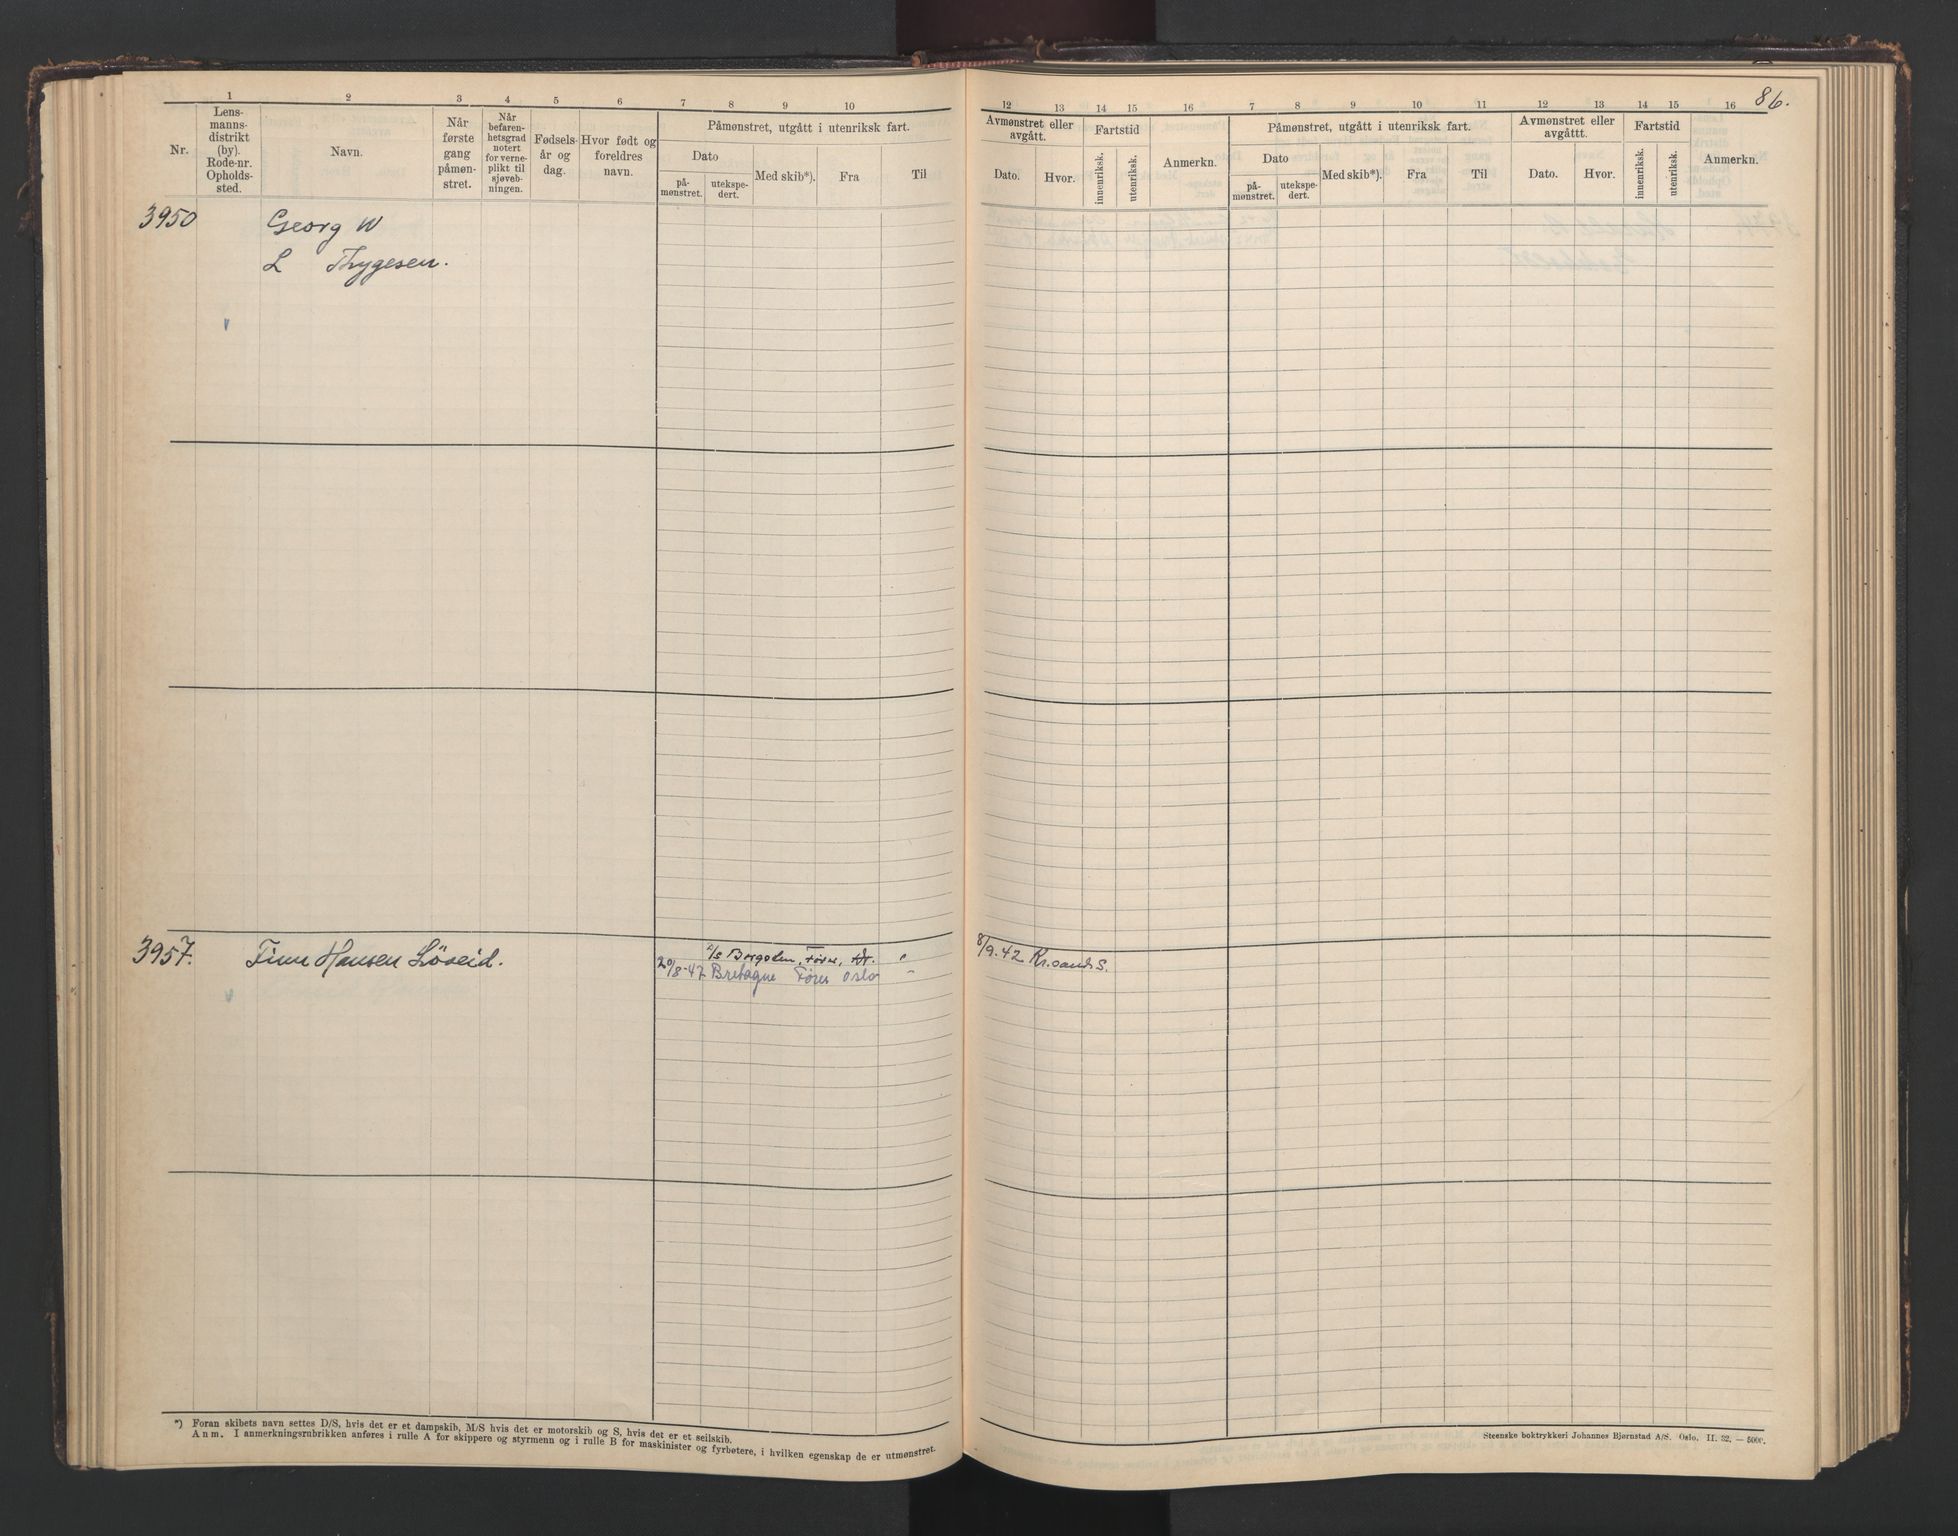 1 2 3 4 5 6 7 8 9 10
Nr.
Lens-
manns-
distrikt
(by).
Rode-nr.
Opholds-
sted.
Navn.
Når
første
gang
påmøn-
stret.
Når
befaren-
hetsgrad
notert
for verne-
plikt til
sjøveb-
ningen.
Fødsels-
år og
dag.
Hvor født og
foreldres
navn.
Påmønstret, utgått i utenriksk fart.
Dato
på-
mønstret.
utekspe-
dert.
Med skib*).
Fra
Til
3950
Georg W
L Thygesen.
3957.
Finn Hansen Löveid.
20/8-47 Bretagne Fører Oslo "
*) Foran skibets navn settes D/S, hvis det er et dampskib, M/S hvis det er motorskib og S, hvis det er et seilskib.
Anm. I anmerkningsrubrikken anføres i rulle A for skippere og styrmenn og i rulle B for maskinister og fyrbøtere, i hvilken egenskap de er utmønstret.
86.
12 13 14 15 16 7 8 9 10 11 12 13 14 15 16
Avmønstret eller
avgått.
Dato.
Hvor.
Fartstid
innenriksk.
utenriksk.
Anmerkn.
Påmønstret, utgått i utenriksk fart.
Dato
på-
mønstret.
utekspe-
dert.
Med skib*).
Fra
Til
Avmønstret eller
avgåttt.
Dato.
Hvor.
Fartstid
innenriksk.
utenriksk.
Anmerkn.
8/9.42 Kr.sand S.
Steenske boktrykkeri Johannes Bjørnstad A/S. Oslo. II. 32. — 5000.